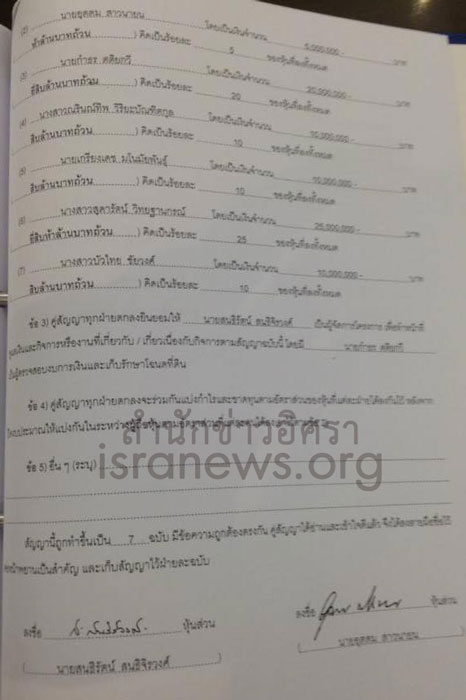 (2) นายอุตตม สาวนายน โดยเป็นเงินจำนวน 5,000,000.- บาท
(ห้าล้านบาทถ้วน) คิดเป็นร้อยละ 5 ของหุ้นที่ลงทั้งหมด
นายกำธร ตติยกวี โดยเป็นเงินจำนวน 20,000,000.- บาท
(ยี่สิบล้านบาทถ้วน) คิดเป็นร้อยละ 20 ของหุ้นที่ลงทั้งหมด
(4) นางสาวณรินณ์ทิพ วิริยะบัณฑิตกุล โดยเป็นเงินจำนวน 10,000,000.- บาท
สิบล้านบาทถ้วน) คิดเป็นร้อยละ 10 ของหุ้นที่ลงทั้งหมด
(5) นายเกรียงเดช มโนมัยพันธุ์ โดยเป็นเงินจำนวน 10,000,000.- บาท
สิบล้านบาทถ้วน) คิดเป็นร้อยละ 10 ของหุ้นที่ลงทั้งหมด
(6) นางสาวสุดารัตน์ วิทยฐานกรณ์ โดยเป็นเงินจำนวน 25,000,000.- บาท
(ยี่สิบห้าล้านบาทถ้วน) คิดเป็นร้อยละ 25 ของหุ้นที่ลงทั้งหมด
(7) นางสาวบัวไทย ชัยวงค์ โดยเป็นเงินจำนวน 10,000,000.- บาท
สิบล้านบาทถ้วน) คิดเป็นร้อยละ 10 ของหุ้นที่ลงทั้งหมด
ข้อ 3) คู่สัญญาทุกฝ่ายตกลงยินยอมให้ นายสนธิรัตน์ สนธิจิรวงศ์ เป็นผู้จัดการโครงการ เพื่อทำหน้าที่
ดูแลเงินและกิจการหรืองานที่เกี่ยวกับ / เกี่ยวเนื่องกับกิจการตามสัญญาฉบับนี้ โดยมี นายกำธร ตติยกวี
เป็นผู้ตรวจสอบงบการเงินและเก็บรักษาโฉนดที่ดิน
ข้อ 4) คู่สัญญาทุกฝ่ายตกลงจะร่วมกันแบ่งกำไรและขาดทุนตามอัตราส่วนของหุ้นที่แต่ละฝ่ายได้ลงกันไว้
สำนักข่าวอิศรา
isranews.org
ข้อ 5) อื่น ๆ (ระบุ)
สัญญานี้ถูกทำขึ้นเป็น 7 ฉบับ มีข้อความถูกต้องตรงกัน คู่สัญญาได้อ่านและเข้าใจดีแล้ว จึงได้ลงลายมือชื่อไว้
ต่อหน้าพยานเป็นสำคัญ และเก็บสัญญาไว้ฝ่ายละฉบับ
ลงชื่อ หุ้นส่วน ลงชื่อ หุ้นส่วน
( นายสนธิรัตน์ สนธิจิรวงศ์ ) ( นายอุตตม สาวนายน )